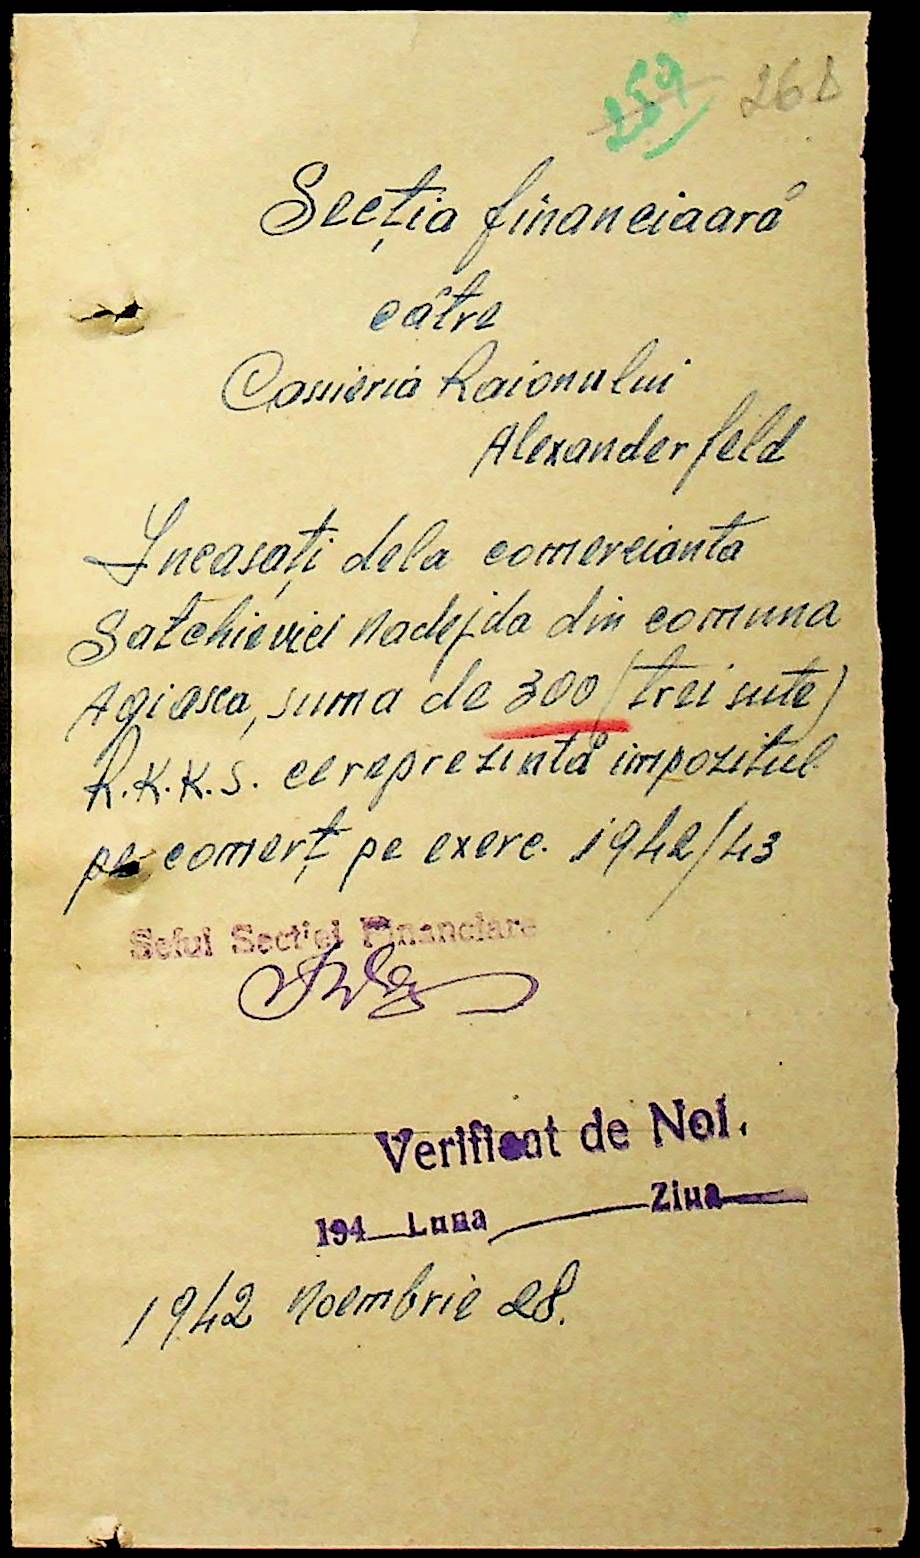 259 268
Secția financiaară
către
Cassieria Raionului
Alexanderfeld
Incasați dela comercianta
Satchievici Nadejda din comuna
Agiasca, suma de 300 (trei sute)
R.K.K.S. ce reprezintă impozitul
pe comerț pe exerc. 1942/43
Seful Secției Financiare
Verificat de Noi.
194 Luna Ziua
1942 Noembrie 28.